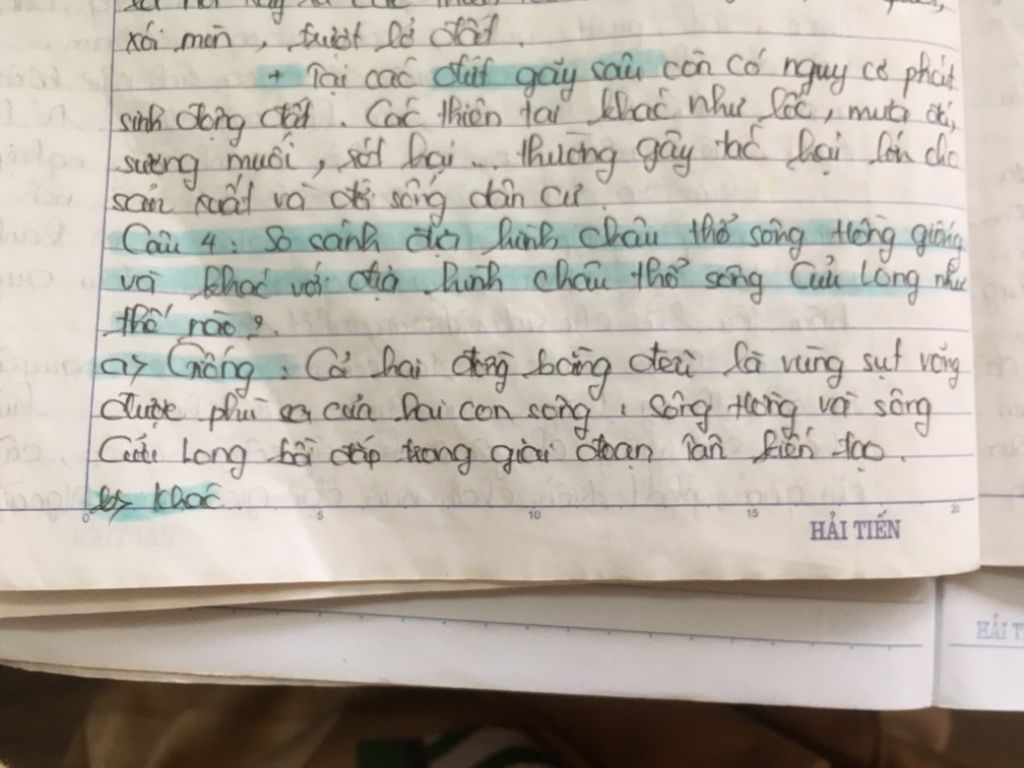 xói mòn, trượt lở đất.
+ Tại các đứt gãy sâu còn có nguy cơ phát
sinh động đất. Các thiên tai khác như lốc, mưa đá,
sương muối, rét hại. thường gây tác hại lớn cho
sản xuất và đời sống dân cư.
Câu 4: So sánh địa hình châu thổ sông Hồng giống
và khác với địa hình châu thổ sông Cửu Long như
thế nào?
a> Giống: Cả hai đồng bằng đều là vùng sụt võng
được phù sa của hai con sông: sông Hồng và sông
Cửu Long bồi đắp trong giai đoạn Tân kiến tạo.
b> Khác
0 5 10 15 20
HẢI TIẾN
HẢI T